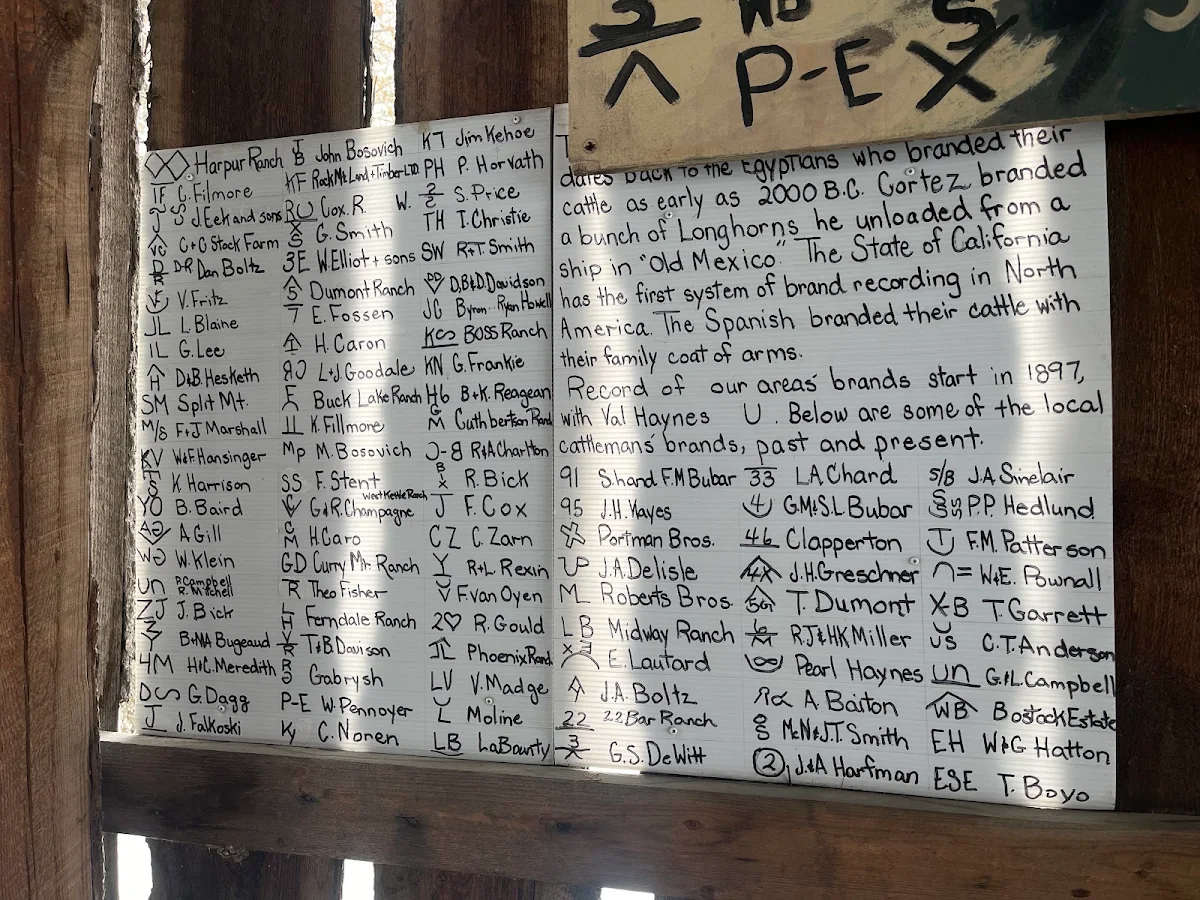 P-E
Harpur Ranch
IF C. Filmore
J. Eek and sons
C+C Stock Farm
D-R Dan Boltz
V. Fritz
JL L. Blaine
IL G. Lee
H D&B. Hesketh
SM Split Mt.
M/S F+J Marshall
KV W&F. Hansinger
K. Harrison
YO B. Baird
A. Gill
W. Klein
UN P. Campbell
R. Mitchell
ZJ J. Bick
B+NA Bugeaud
HM H&C. Meredith
G. Dagg
J J. Falkoski
John Bosovich
KF Rock Mt. Land + Timber LTD.
Cox. R. W.
G. Smith
3E W. Elliot + sons
Dumont Ranch
7 E. Fossen
H. Caron
L+J. Goodale
Buck Lake Ranch
K. Fillmore
MP M. Bosovich
SS F. Stent
West Kettle Ranch
G&R. Champagne
H. Caro
GD Curry Mt. Ranch
R Theo Fisher
LH Ferndale Ranch
T&B. Davison
Gabrysh
P-E W. Pennoyer
Ky C. Noren
K7 Jim Kehoe
PH P. Horvath
2/2 S. Price
TH I. Christie
SW R+T. Smith
D,B&D. Davidson
JC Byron - Ryan Howell
BOSS Ranch
KN G. Frankie
H6 B+K. Reagean
GM Cuthbertson Ranch
J-B R&A Charlton
R. Bick
J F. Cox
CZ C. Zarn
Y R+L. Rexin
F. van Oyen
2♡ R. Gould
Phoenix Ranch
LV V. Madge
L Moline
LB LaBounty
dates back to the Egyptians who branded their
cattle as early as 2000 B.C. Cortez branded
a bunch of Longhorns he unloaded from a
ship in "Old Mexico." The State of California
has the first system of brand recording in North
America. The Spanish branded their cattle with
their family coat of arms.
Record of our areas' brands start in 1897,
with Val Haynes U . Below are some of the local
cattlemans' brands, past and present.
91 S. hand F.M Bubar
95 J.H. Hayes
Portman Bros.
J.A. Delisle
M Roberts Bros.
LB Midway Ranch
E. Lautard
J.A. Boltz
22 22 Bar Ranch
G.S. DeWitt
33 L.A Chard
4 G.M&S.L Bubar
46 Clapperton
4X J.H. Greschner
T. Dumont
R.J&HK Miller
Pearl Haynes
A. Baiton
McN&J.T. Smith
2 J.&A Harfman
S/B J.A. Sinclair
P.P. Hedlund
F.M. Patterson
W&E. Pownall
X-B T. Garrett
C.T. Anderson
UN G.&L. Campbell
WB Bostock Estate
EH W&G Hatton
ESE T. Boyo